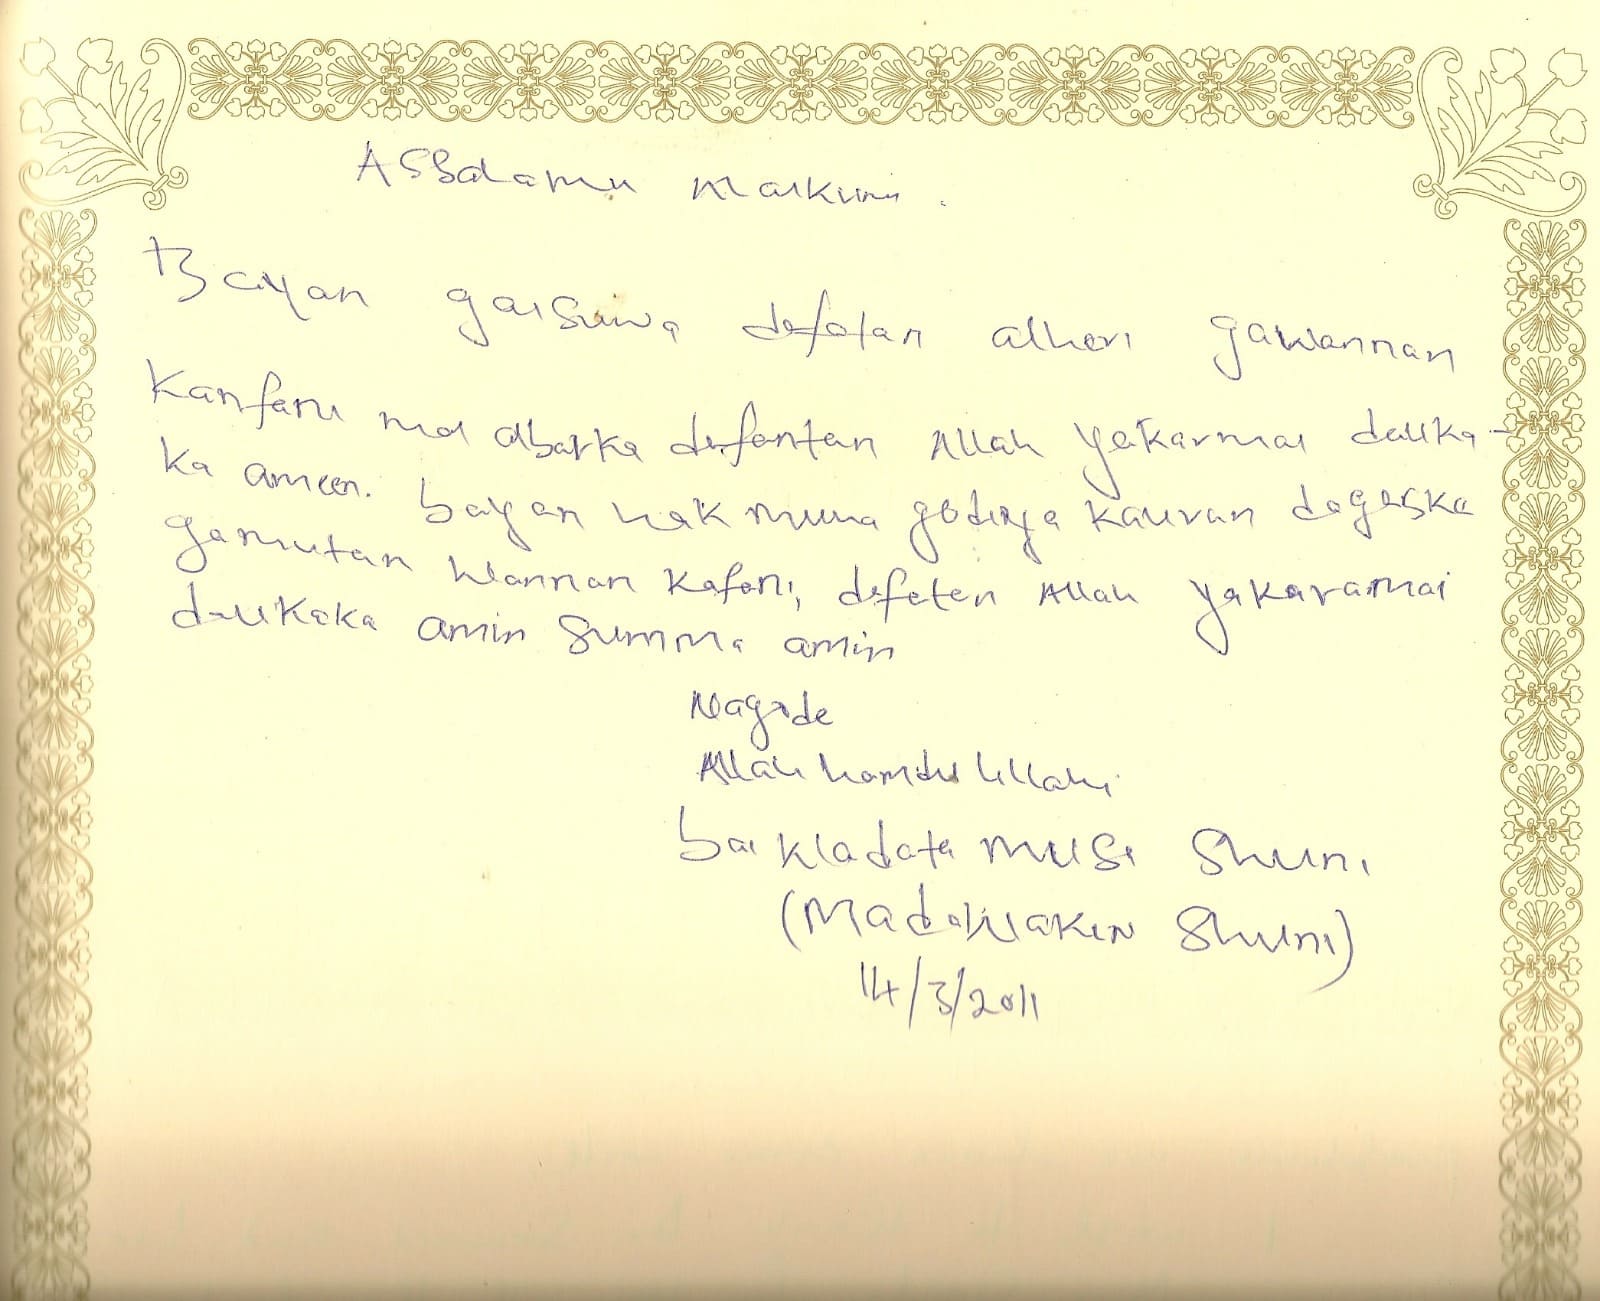 Assalamu Maikum.
Bayan gaisuwa defatan alheri gawannan
Kanfani mai albarka defantan Allah yakarmai dauka-
ka ameen. bayan hak muna godiya kauran dagaske
gamutan wannan kafani, defeten Allah yakaramai
daukaka amin summa amin
Nagode
Allah hamdu lillahi
Musa Shuni
(Madawakin Shuni)
14/3/2011